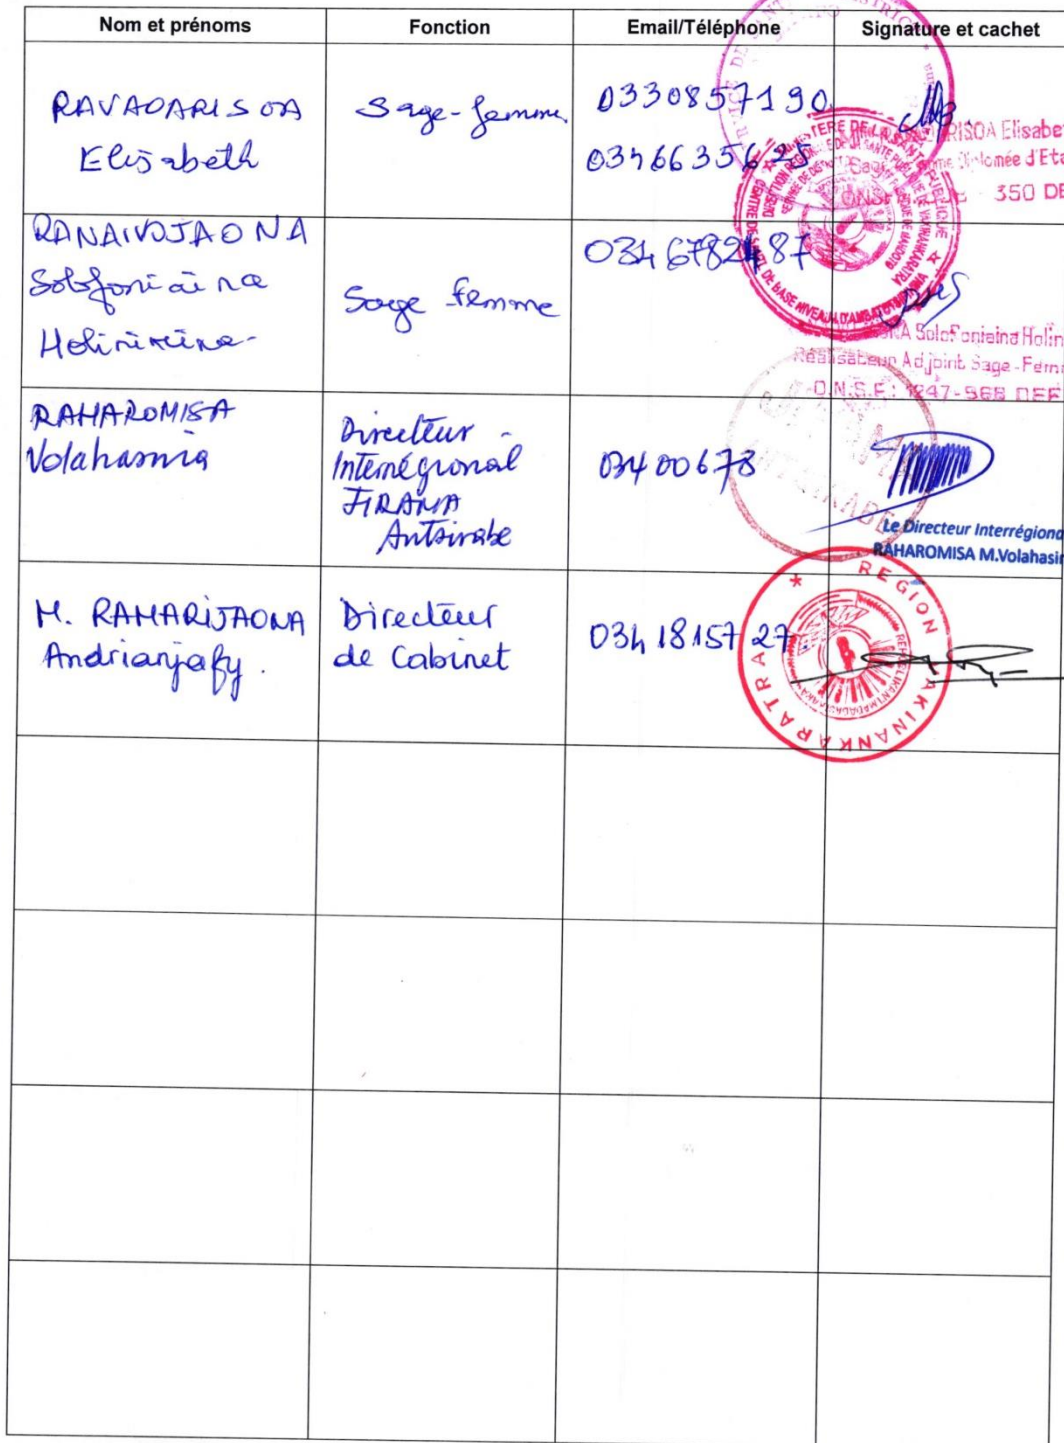 Nom et prénoms Fonction Email/Téléphone Signature et cachet
RAVAOARISOA
Elisabeth
Sage-femme
0330857190
0346635625
RISOA Elisabet
Sage-
lomée d'Eta
350 DE
MINISTERE DE LA SANTE PUBLIQUE
RANAIVOJAONA
Solofoniaina
Holinirina
Sage femme
034 6782487
SoloFoniaina Holin
Réalisateur Adjoint Sage-Fem
O.N.S.F: 1247-568 DEF
RAHAROMISA
Volahasinia
Directeur
Interrégional
JIRAMA
Antsirabe
03400678
JIRAMA
ANTSIRABE
Le Directeur Interrégiona
RAHAROMISA M.Volahasi
M. RAHARIJAONA
Andrianjafy.
Directeur
de Cabinet
034 18 157 27
REGION
AKINANKARATRA